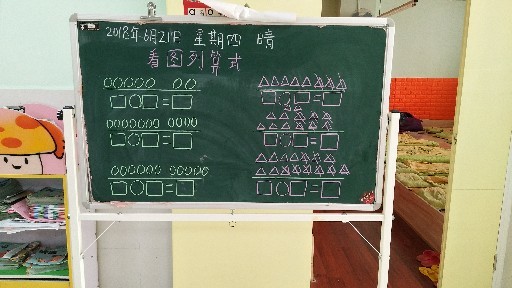 2018年6月21日 星期四 晴
看图列算式
□○□=□ □○□=□
□○□=□ □○□=□
□○□=□ □○□=□